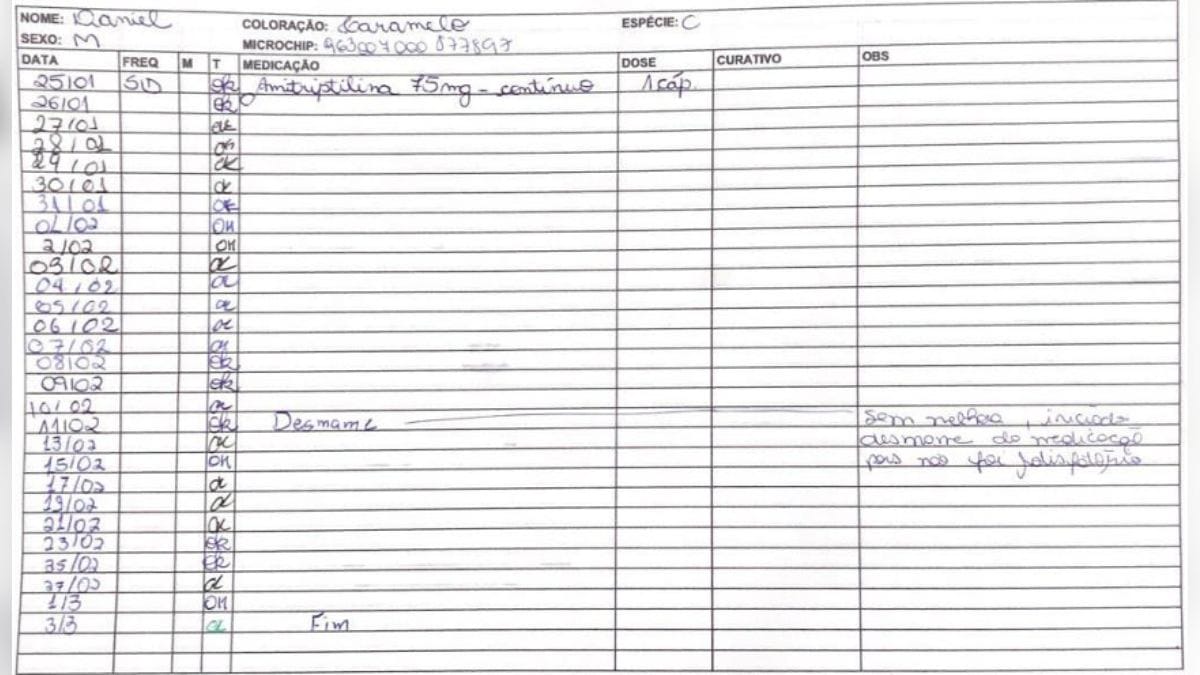 NOME: Daniel COLORAÇÃO: Caramelo ESPÉCIE: C
SEXO: M MICROCHIP: 963007000877897
DATA FREQ M T MEDICAÇÃO DOSE CURATIVO OBS
25/01 SID ok Amitriptilina 75mg - contínuo 1 cáp.
26/01 ok
27/01 ok
28/01 ok
29/01 ok
30/01 ok
31/01 ok
01/02 OK
2/02 OK
03/02 ok
04/02 ok
05/02 ok
06/02 ok
07/02 ok
08/02 ok
09/02 ok
10/02 ok
11/02 ok Desmame sem melhora, iniciado
13/02 ok desmame da medicação
15/02 OK pois não foi satisfatório
17/02 ok
19/02 ok
21/02 ok
23/02 ok
25/02 ok
27/02 ok
1/3 OK
3/3 ok Fim